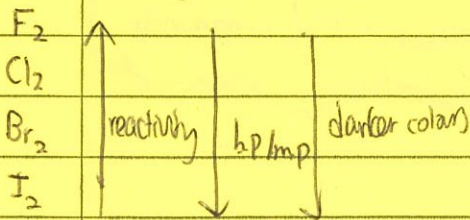 F₂
Cl₂
Br₂ reactivity bp/mp darker colors
I₂